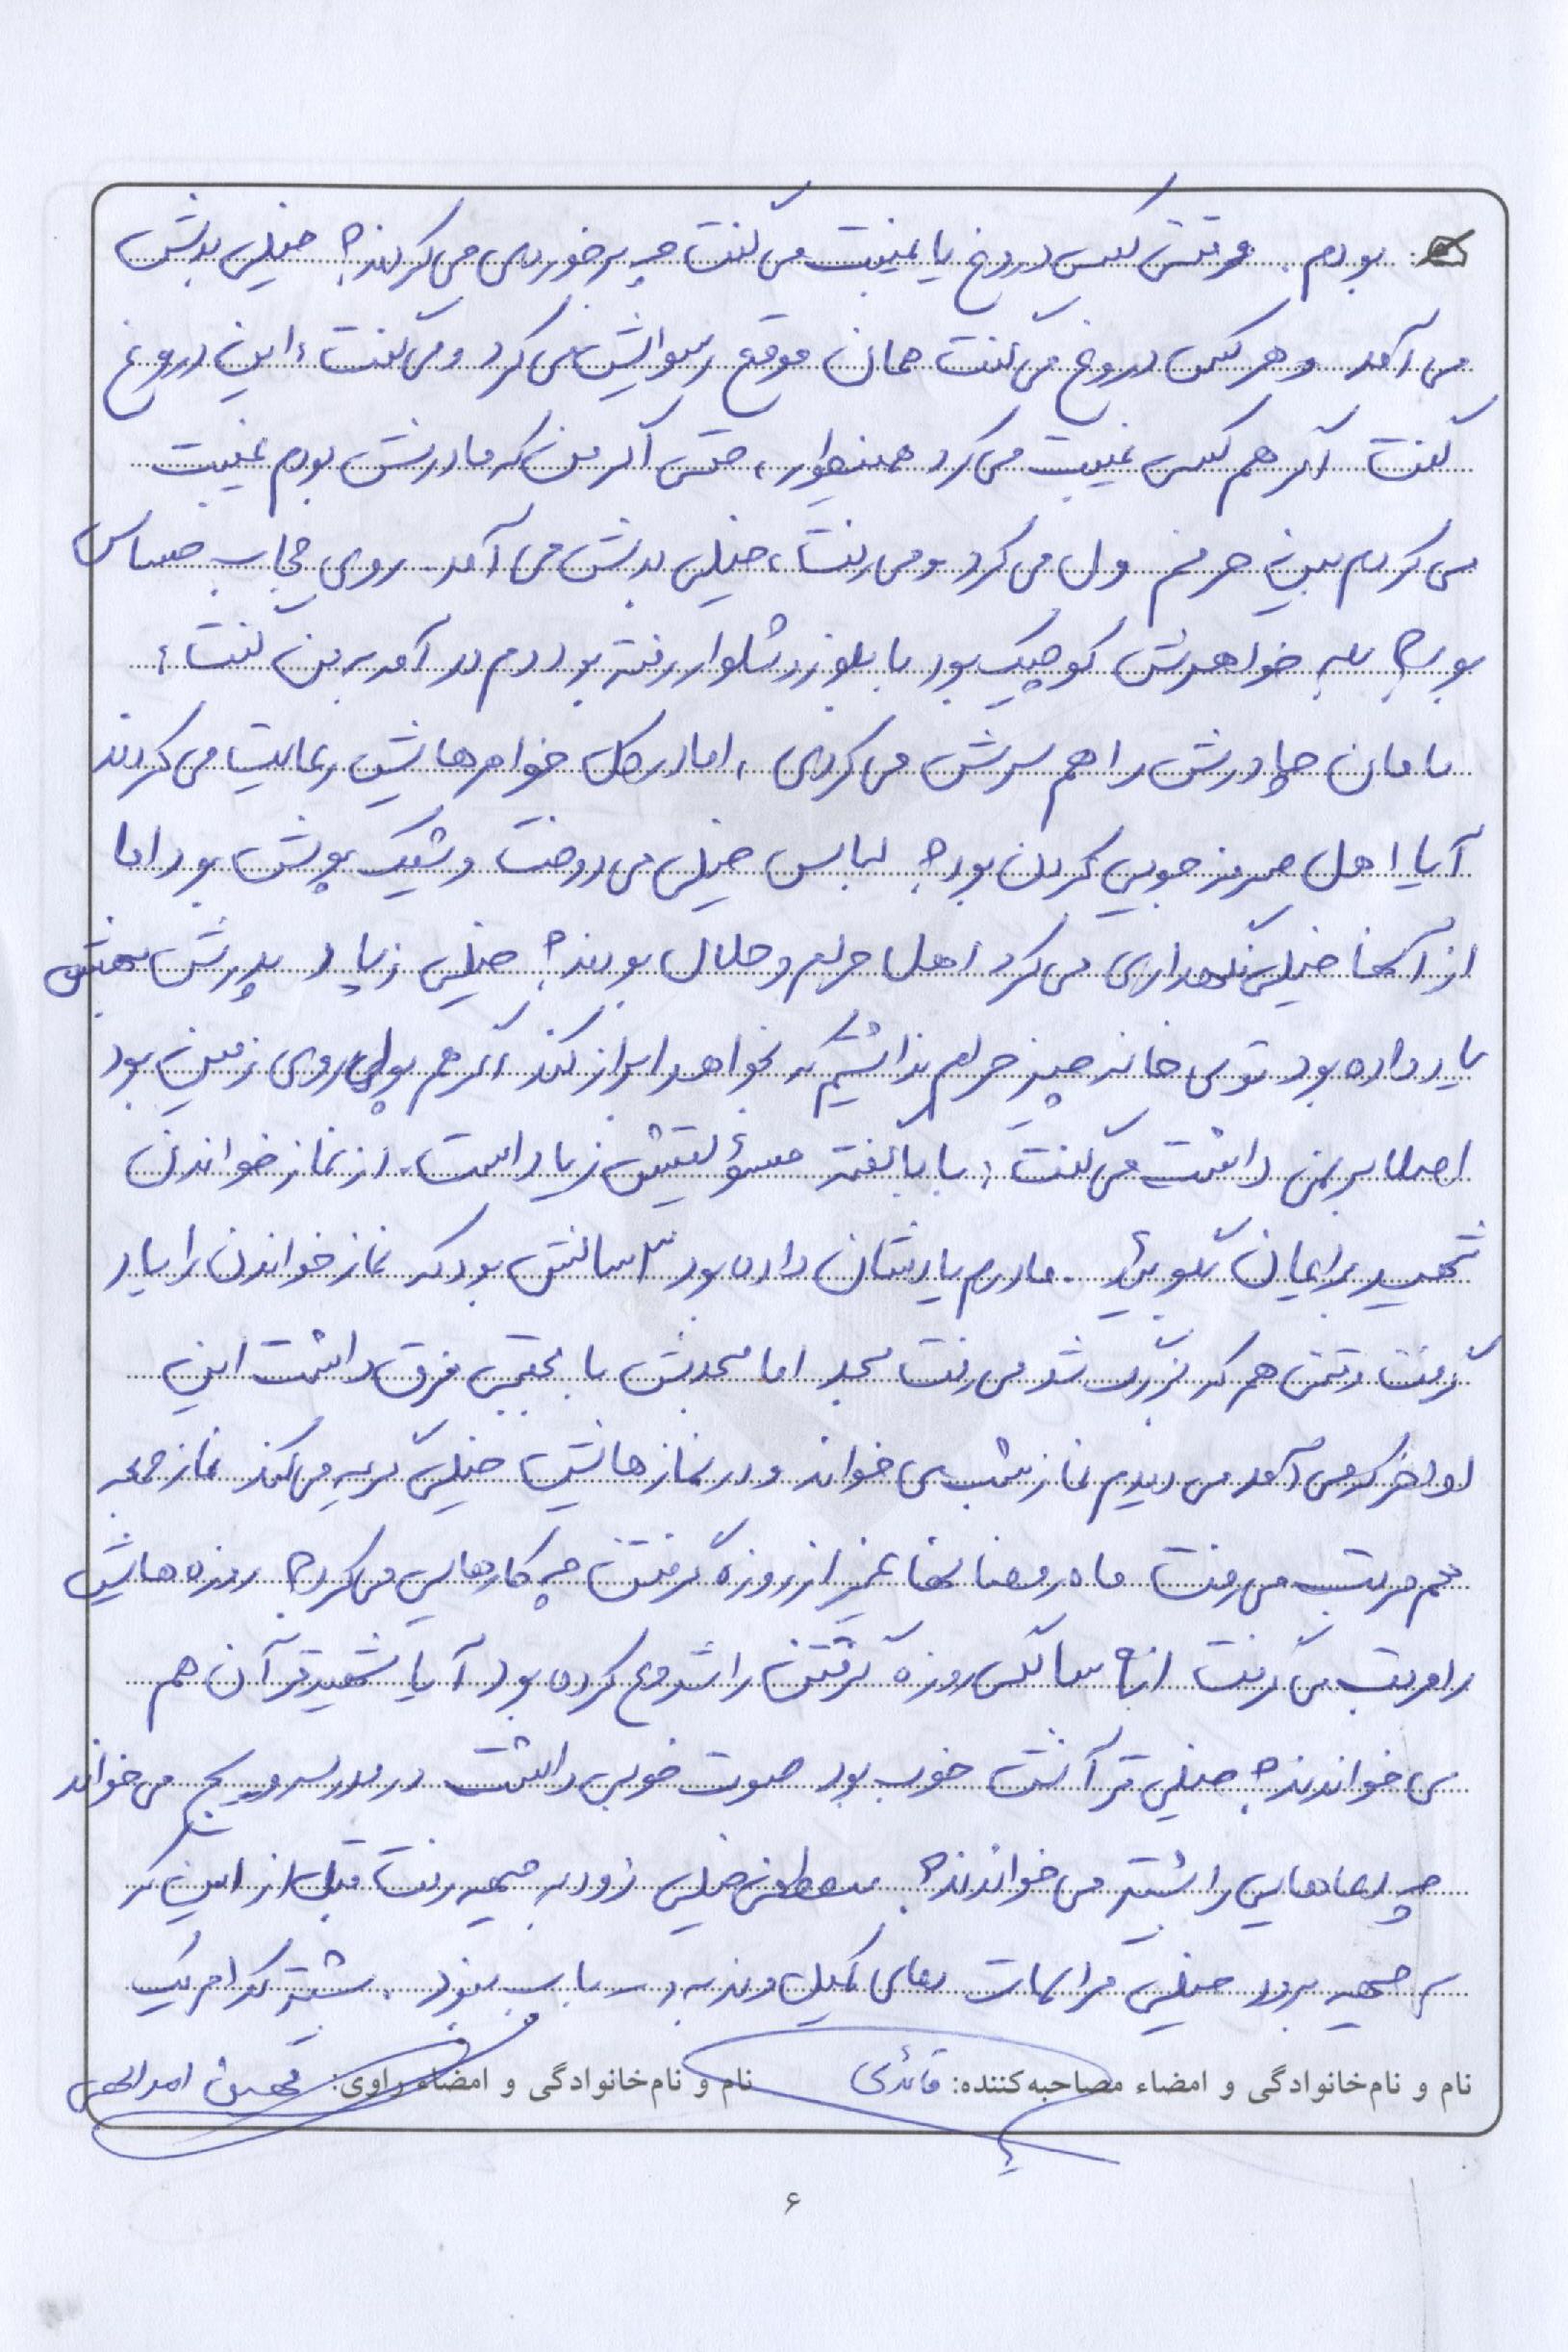 بودم. وقتی کسی دروغ یا غیبت می گفت چه برخوردی می کردند؟ خیلی بدش
می آمد و هر کس دروغ می گفت همان موقع رسوایش می کرد و می گفت: این دروغ
گفت اگر هم کسی غیبت می کرد همینطور، حتی اگر من که مادرش بودم غیبت
می کردم بین حرفم ول می کرد و می رفت، خیلی بدش می آمد. روی حجاب حساس
بود؟ بله خواهرش کوچیک بود با بلوز و شلوار رفته بود دم در آمد به من گفت:
مامان چادرش را هم سرش می کردی، اما در کل خواهرهایش رعایت می کردند
آیا اهل صرفه جویی کردن بود؟ لباس خیلی می دوخت و شیک پوش بود اما
از آنها خیلی نگهداری می کرد اهل حرام و حلال بودند؟ خیلی زیاد پدرش بهش
یاد داده بود توی خانه چیز حرام نداشتیم که بخواهد ابراز کند اگر هم پولی روی زمین بود
اصلا بر نمی داشت می گفت: بابا گفته مسؤلیتش زیاد است. از نماز خواندن
شهید برایمان بگویید. مادرم یادشان داده بود ۳ سالش بود که نماز خواندن را یاد
گرفت وقتی هم که بزرگ شد می رفت مسجد اما مسجدش با بقیه فرق داشت این
اواخر که می آمد می دیدم نماز شب می خواند و در نمازهایش خیلی گریه می کند نماز جمعه
هم مرتب می رفت ماه رمضانها غیر از روزه گرفتن چه کارهایی می کرد؟ روزه هایش
را مرتب می گرفت از سالگی روزه گرفتن را شروع کرده بود آیا شهید قرآن هم
می خواندند؟ خیلی قرآنش خوب بود صوت خوبی داشت در مدرسه و بسیج می خواند
چه دعاهایی را بیشتر می خواندند؟ مصطفی خیلی زود به جبهه رفت قبل از این که
به جبهه برود خیلی مراسمات دعای کمیل و ندبه و باب نبود. بیشتر کدام یک
نام و نام‌خانوادگی و امضاء مصاحبه‌کننده: قائدی نام و نام‌خانوادگی و امضاء راوی:
۶